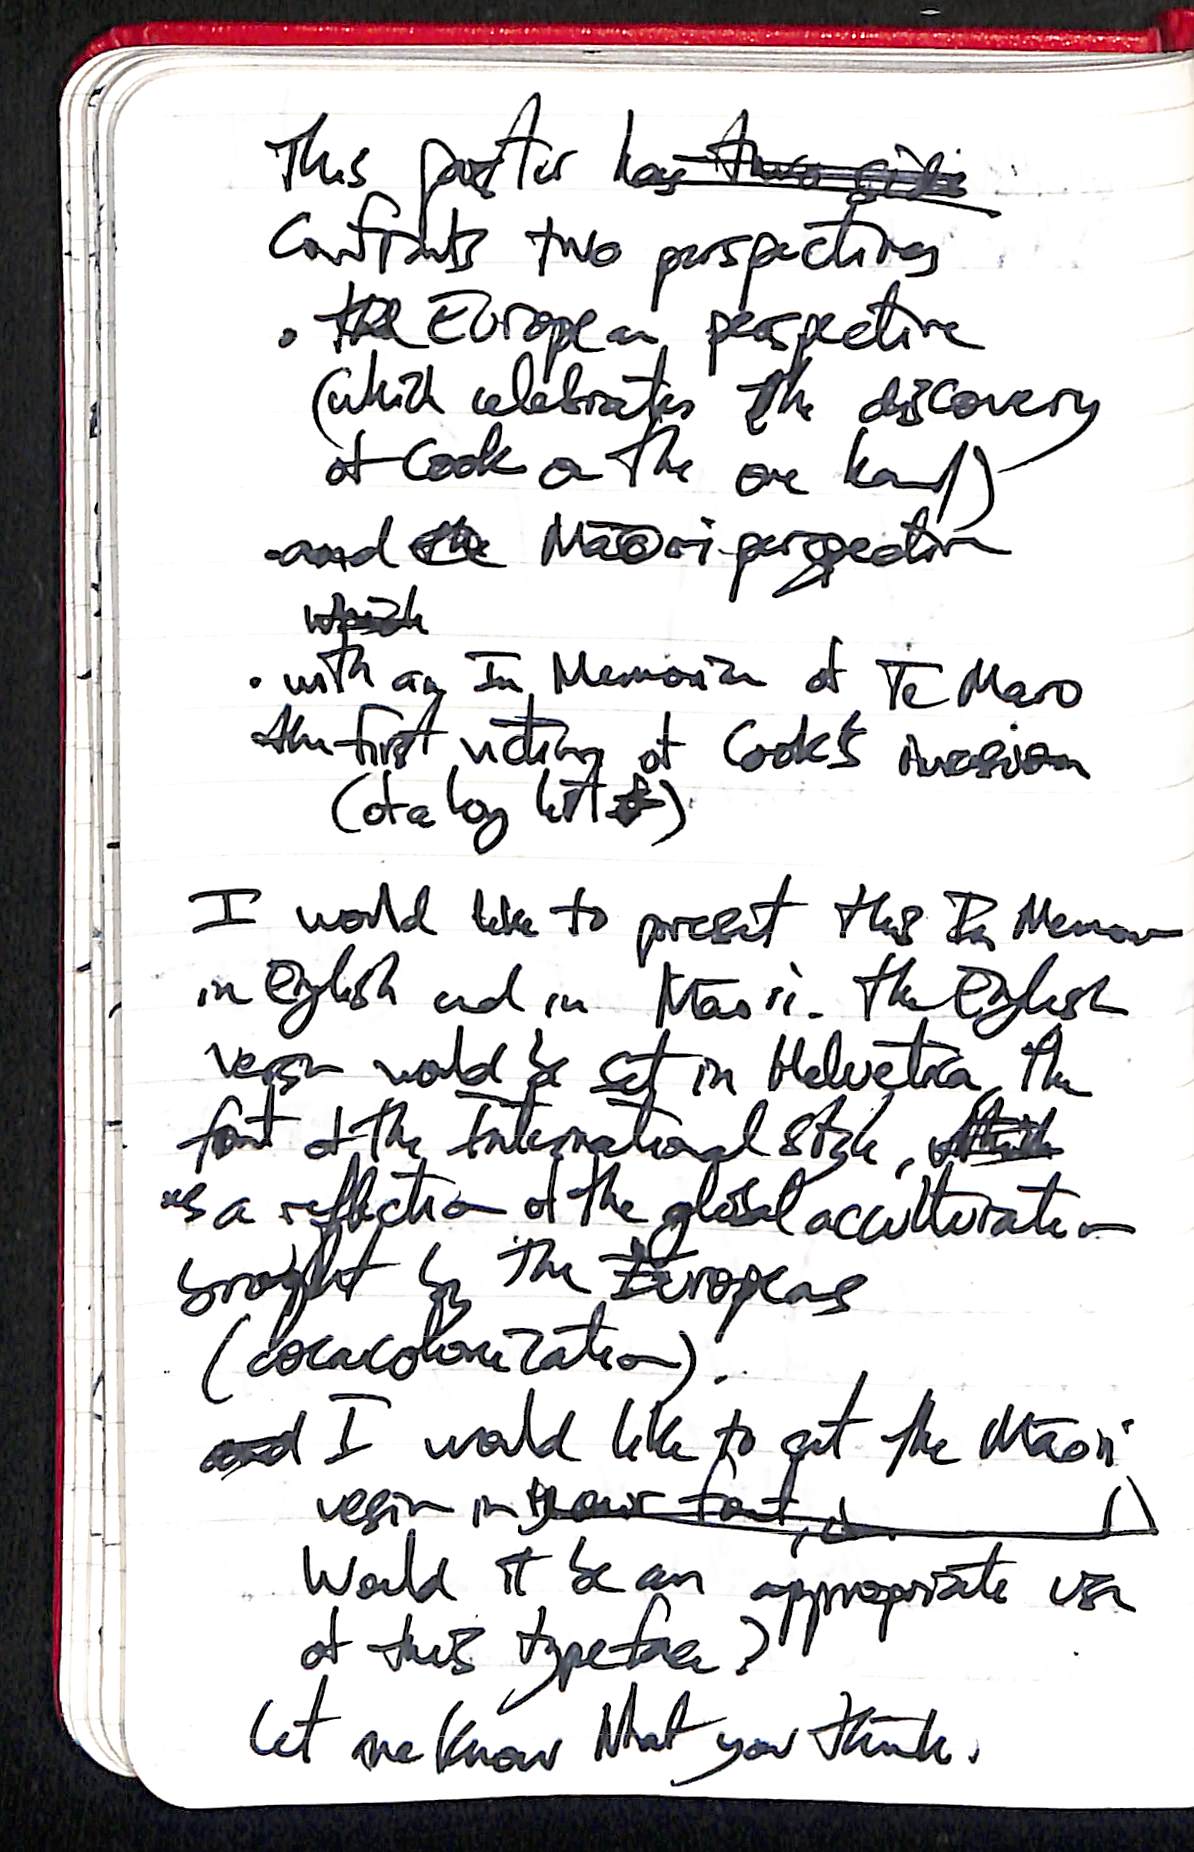 This poster has two sides
confronts two perspectives
. the European perspective
(which celebrates the discovery
of Cook on the one hand)
-and the Māori perspective
which
. with an In Memoriam of Te Maro
the first victim of Cook's invasion
(of a long list)
I would like to present this In Memoriam
in English and in Māori. The English
version would be set in Helvetica, the
font of the International Style,
as a reflection of the global acculturation
brought by the Europeans
(cocacolonization).
and I would like to set the Māori
version in your font,
Would it be an appropriate use
of this typeface?
Let me know what you think.